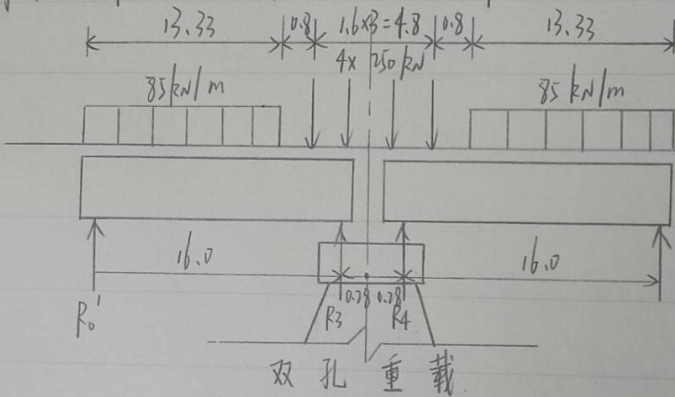 13.33 0.8 1.6×3=4.8 0.8 13.33
4× 250kN
85kN/m 85kN/m
16.0 16.0
0.28 0.28
R₀' R3 R4
双孔重载